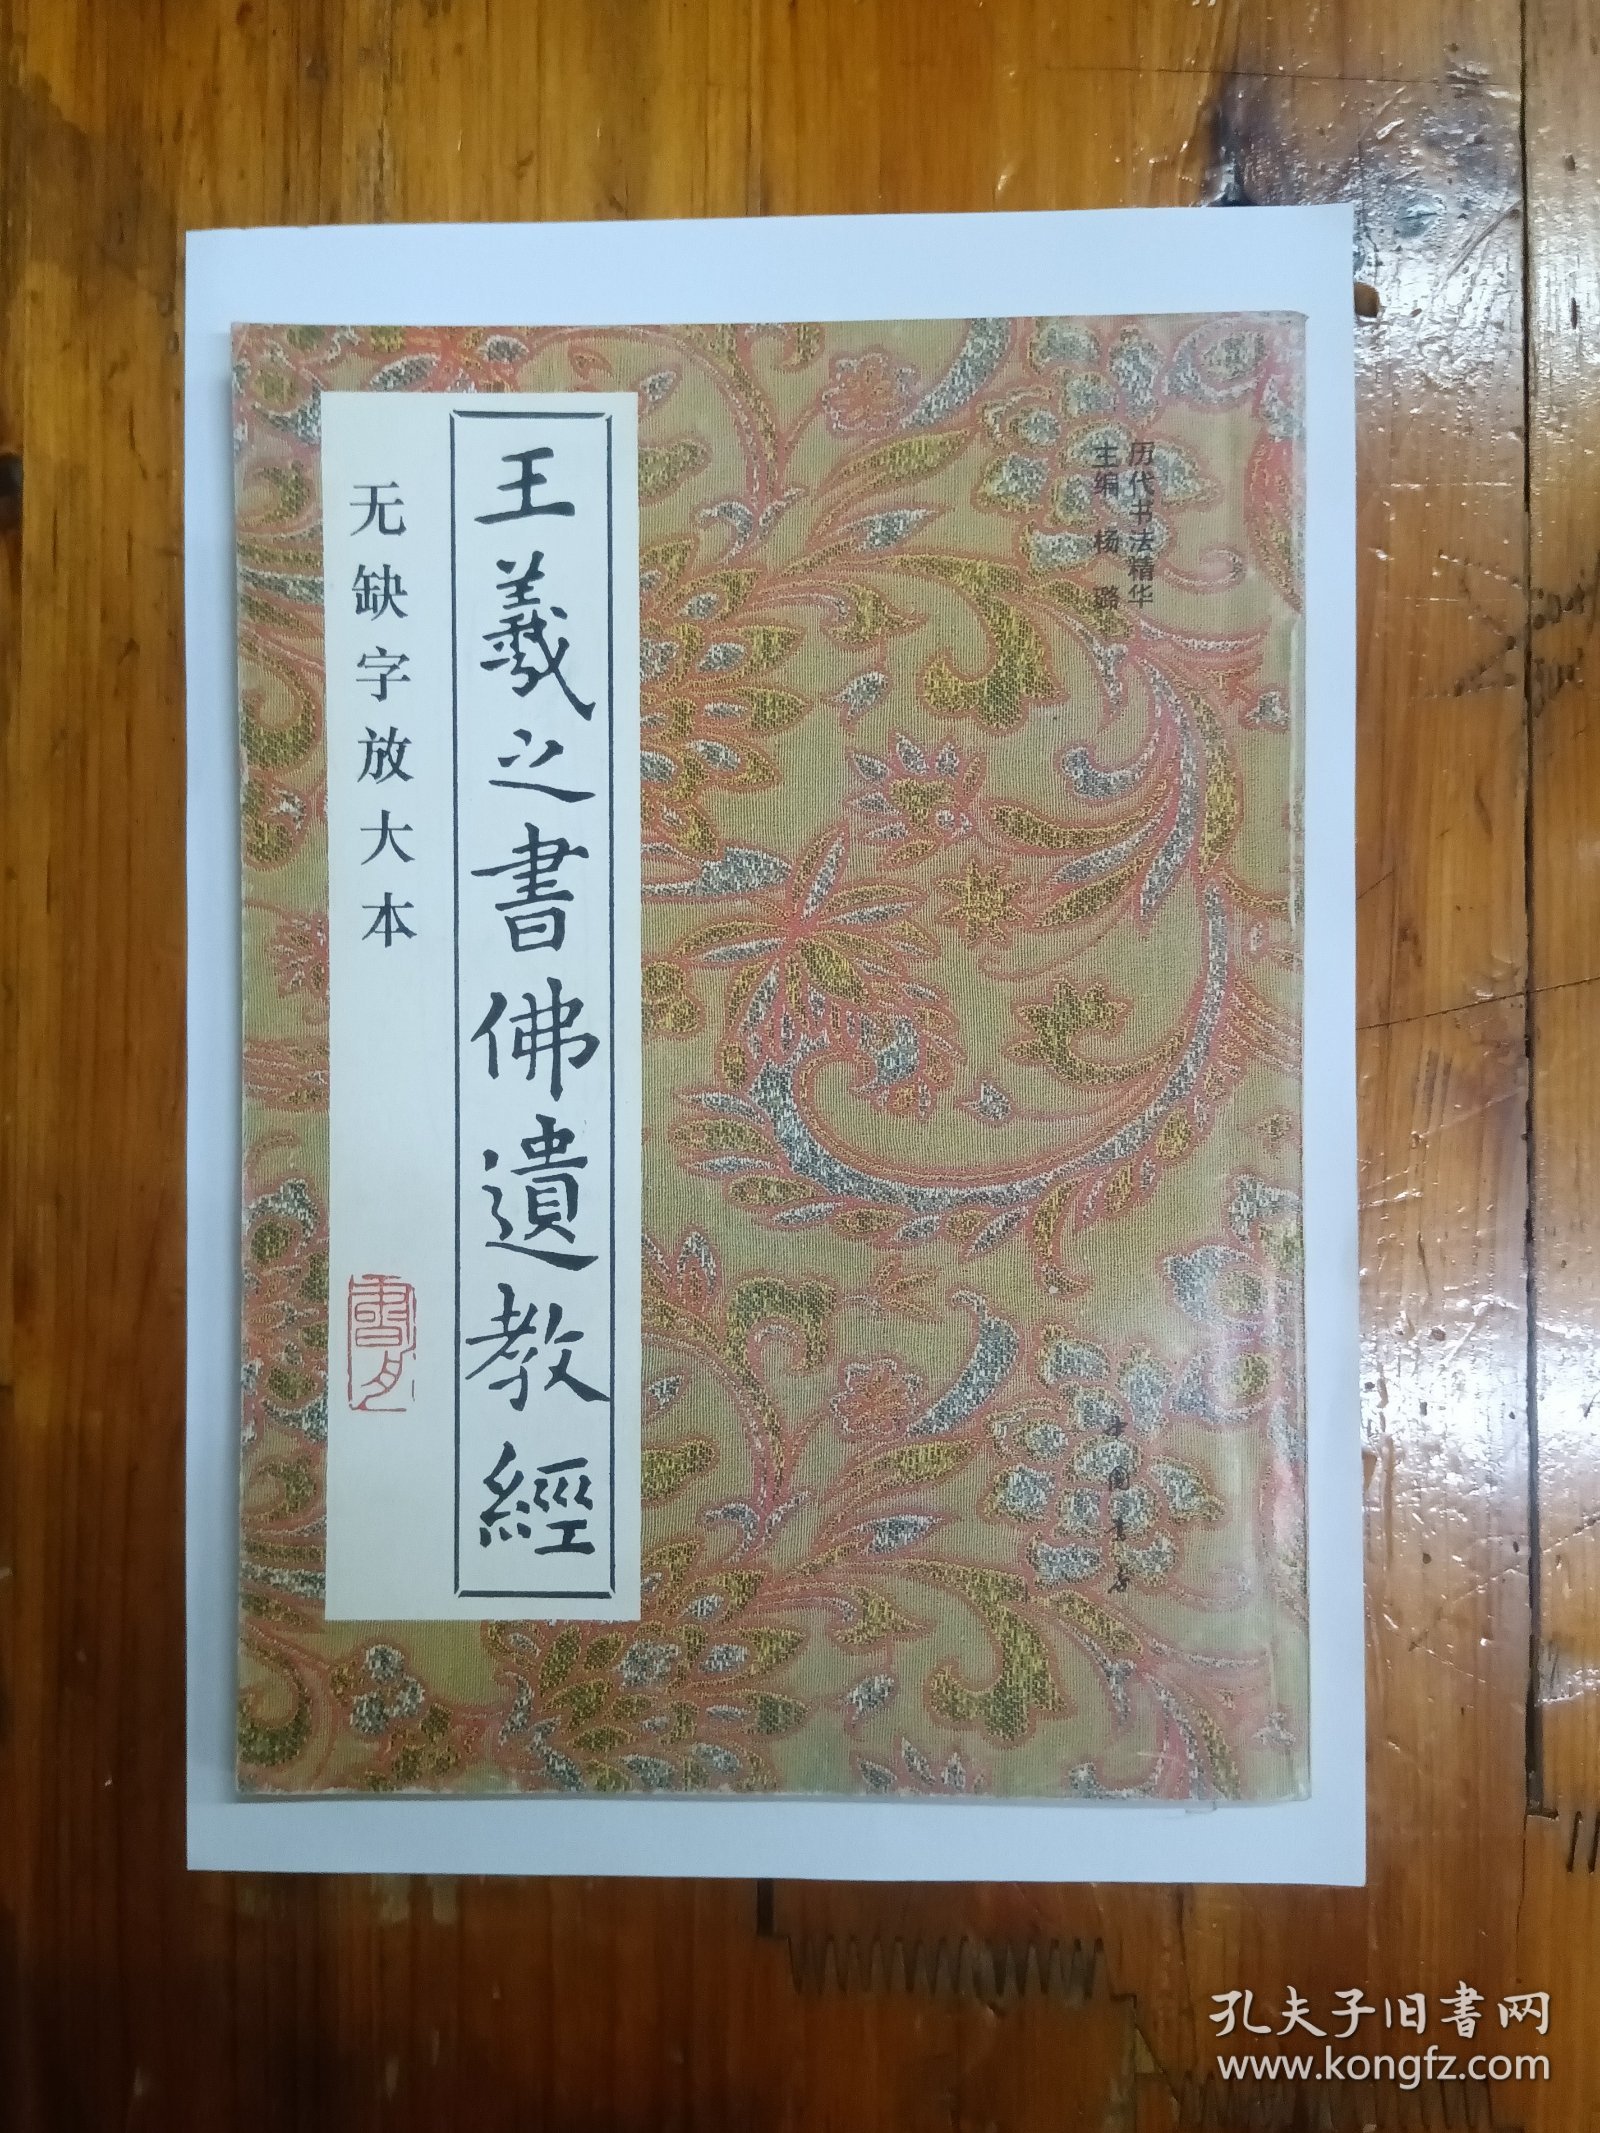 历代书法精华
主编 杨璐
王羲之書佛遺教經
无缺字放大本
中国书店
孔夫子旧書网
www.kongfz.com